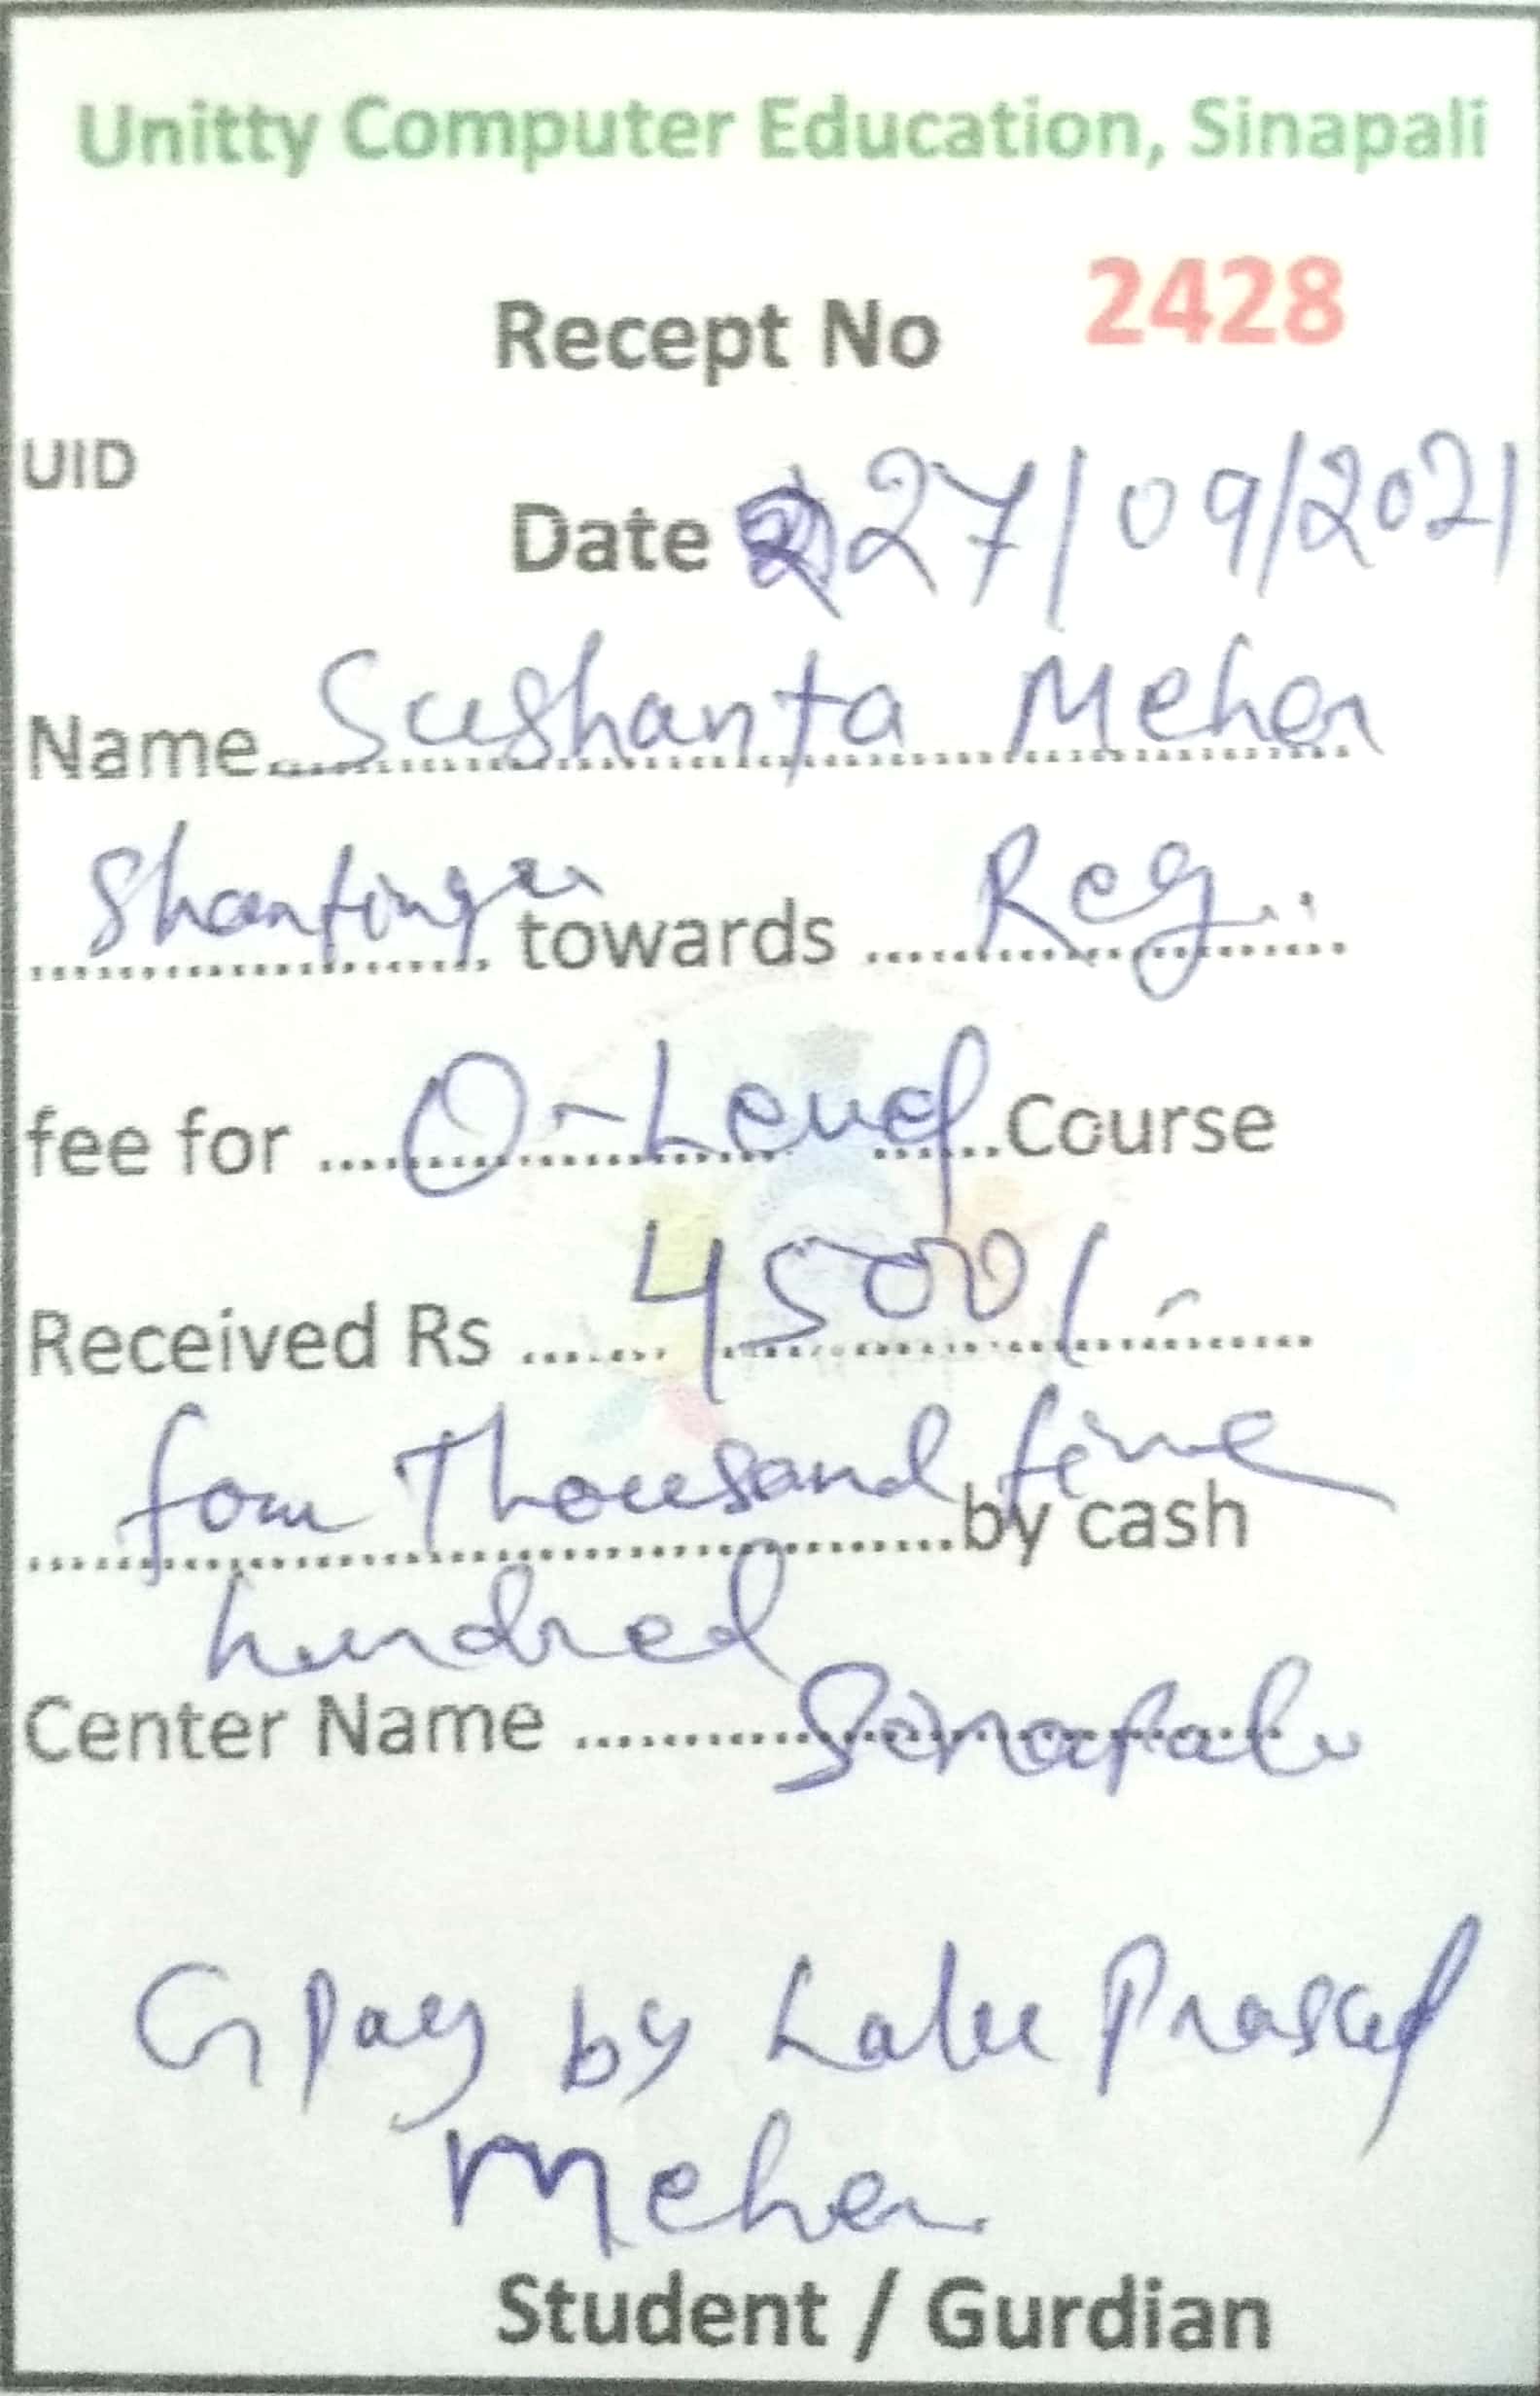 Unitty Computer Education, Sinapali
Recept No 2428
UID
Date 27/09/2021
Name Sushanta Meher
towards Reg.
fee for O-Level Course
Received Rs 4500/-
four Thousand five by cash
hundred
Center Name Sinapali
G Pay by Lalu Prasad
Meher
Student / Gurdian